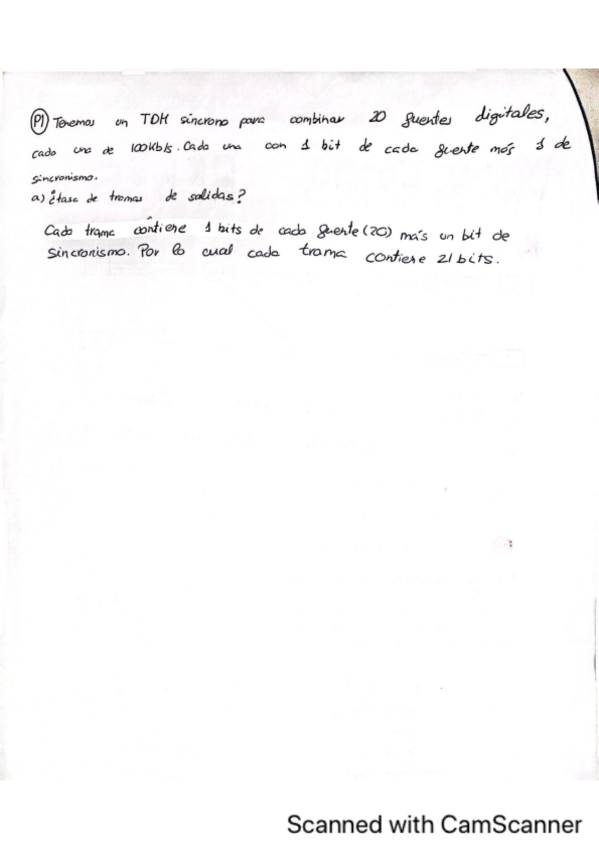 P1 Tenemos un TDM síncrono para combinar 20 fuentes digitales,
cada una de 100Kb/s. Cada una con 1 bit de cada fuente más 1 de
sincronismo.
a) ¿tasa de tramas de salidas?
Cada trama contiene 1 bits de cada fuente (20) más un bit de
sincronismo. Por lo cual cada trama contiene 21 bits.
Scanned with CamScanner